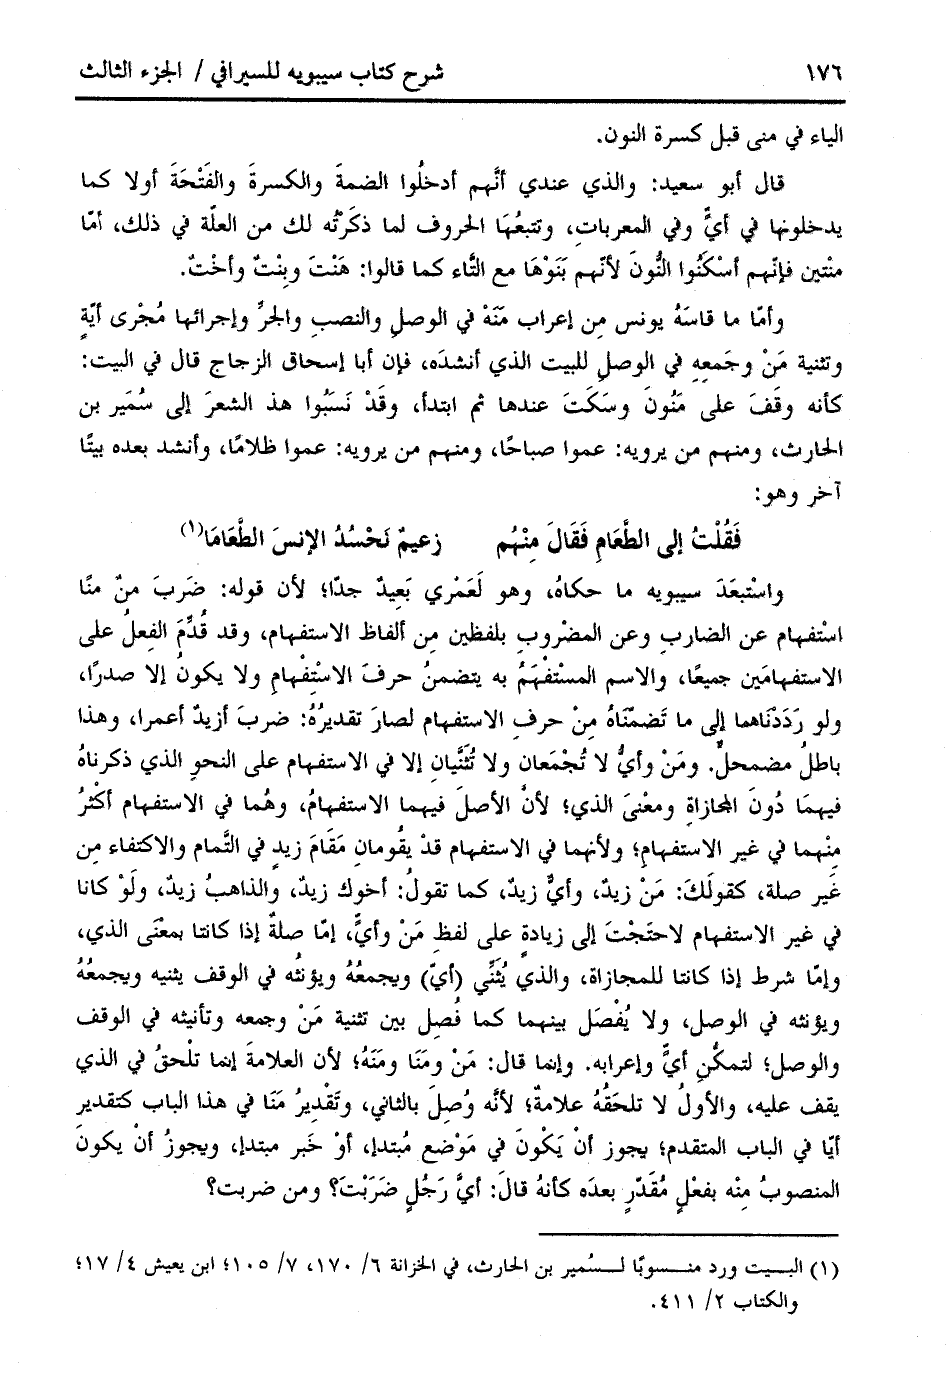 ١٧٦ شرح كتاب سيبويه للسيرافي / الجزء الثالث
الياء في منى قبل كسرة النون.
قال أبو سعيد: والذي عندي أنَّهم أدخلُوا الضمةَ والكسرةَ والفَتْحَةَ أولا كما
يدخلونها في أيٍّ وفي المعربات، وتتبعُهَا الحروف لما ذكَرْتُه لك من العلّة في ذلك، أمّا
منْتين فإنّهم أسْكَنُوا النُّونَ لأنّهم بَنَوْهَا مع التَّاء كما قالوا: هَنْتَ وبِنْتٌ وأخْتٌ.
وأمّا ما قاسَهُ يونس مِن إعراب مَنَهْ في الوصلِ والنصبِ والجرِّ وإجرائها مُجْرى أيّةٍ
وتثنية مَنْ وجَمعِهِ في الوصلِ للبيت الذي أنشدَه، فإن أبا إسحاق الزجاج قال في البيت:
كأنه وقَفَ على مَنُونَ وسَكَتَ عندها ثم ابتدأ، وقَدْ نَسَبُوا هذ الشعرَ إلى سُمَير بن
الحارث، ومنهم من يرويه: عموا صباحًا، ومنهم من يرويه: عموا ظلامًا، وأنشد بعده بيتًا
آخر وهو:
فَقُلْتُ إلى الطَّعَامِ فَقَالَ مِنْهُم زعيمٌ نَحْسُدُ الإنسَ الطَّعَامَا(١)
واسْتبعَدَ سيبويه ما حكاهُ، وهو لَعَمْري بَعِيدٌ جدّا؛ لأن قوله: ضَرَبَ منٌ منًا
اسْتفهام عن الضاربِ وعن المضْروب بلفظين مِن ألفاظ الاستفهام، وقد قُدِّمَ الفعلُ على
الاستفهامَين جميعًا، والاسم المسْتفْهَمُ به يتضمنُ حرفَ الاسْتِفْهامِ ولا يكونُ إلا صدرًا،
ولو رَدَدْنَاهما إلى ما تَضمَّنَاهُ مِنْ حرفِ الاستفهام لصارَ تقديرُهُ: ضربَ أزيدٌ أعمرا، وهذا
باطلٌ مضمحلٌّ. ومَنْ وأيٌّ لا تُجْمَعان ولا تُثَنَّيان إلا في الاستفهام على النحوِ الذي ذكرناهُ
فيهمَا دُونَ المجازاةِ ومعْنىَ الذي؛ لأنْ الأصلَ فيهما الاستفهامُ، وهُما في الاستفهام أكْثرُ
مِنْهما في غير الاستفهامِ؛ ولأنهما في الاستفهام قدْ يقُومان مَقَامَ زيدٍ في التَّمام والاكتفاء مِن
غَير صلة، كقولَكَ: مَنْ زيدٌ، وأيٌّ زيدٌ، كما تقولُ: أخوك زيدٌ، والذاهبُ زيدٌ، ولَوْ كانا
في غير الاستفهام لاحتَجْتَ إلى زيادةٍ على لفظِ مَنْ وأيٍّ، إمّا صلةٌ إذا كانتا بمعْنَى الذي،
وإمّا شرط إذا كانتا للمجازاة، والذي يُثَنِّي (أيّ) ويجمعُهُ ويؤنثُه في الوقف يثنيه ويجمعُهُ
ويؤنثه في الوصل، ولا يُفْصَل بينهما كما فُصِل بين تثنية مَنْ وجمعه وتأنيثه في الوقف
والوصل؛ لتمكُّنِ أيٍّ وإعرابه. وإنما قال: مَنْ ومَنَا ومَنَهُ؛ لأن العلامةَ إنما تلْحقُ في الذي
يقف عليه، والأولُ لا تلحَقُهُ علامةٌ؛ لأنَّه وُصِلَ بالثاني، وتَقْديرُ مَنَا في هذا الباب كتقدير
أيّا في الباب المتقدم؛ يجوز أنْ يَكُونَ في مَوْضع مُبتدإ، أوْ خَبر مبتدإ، ويجوزُ أنْ يكونَ
المنصوبُ مِنْه بفعْلٍ مُقدّرٍ بعدَه كأنهُ قالَ: أيَّ رَجُلٍ ضَرَبْتَ؟ ومن ضربت؟
(١) البـيت ورد منـسوبًا لـسُمير بن الحارث، في الخزانة ٦/ ١٧٠، ٧/ ١٠٥؛ ابن يعيش ٤/ ١٧؛
والكتاب ٢/ ٤١١.